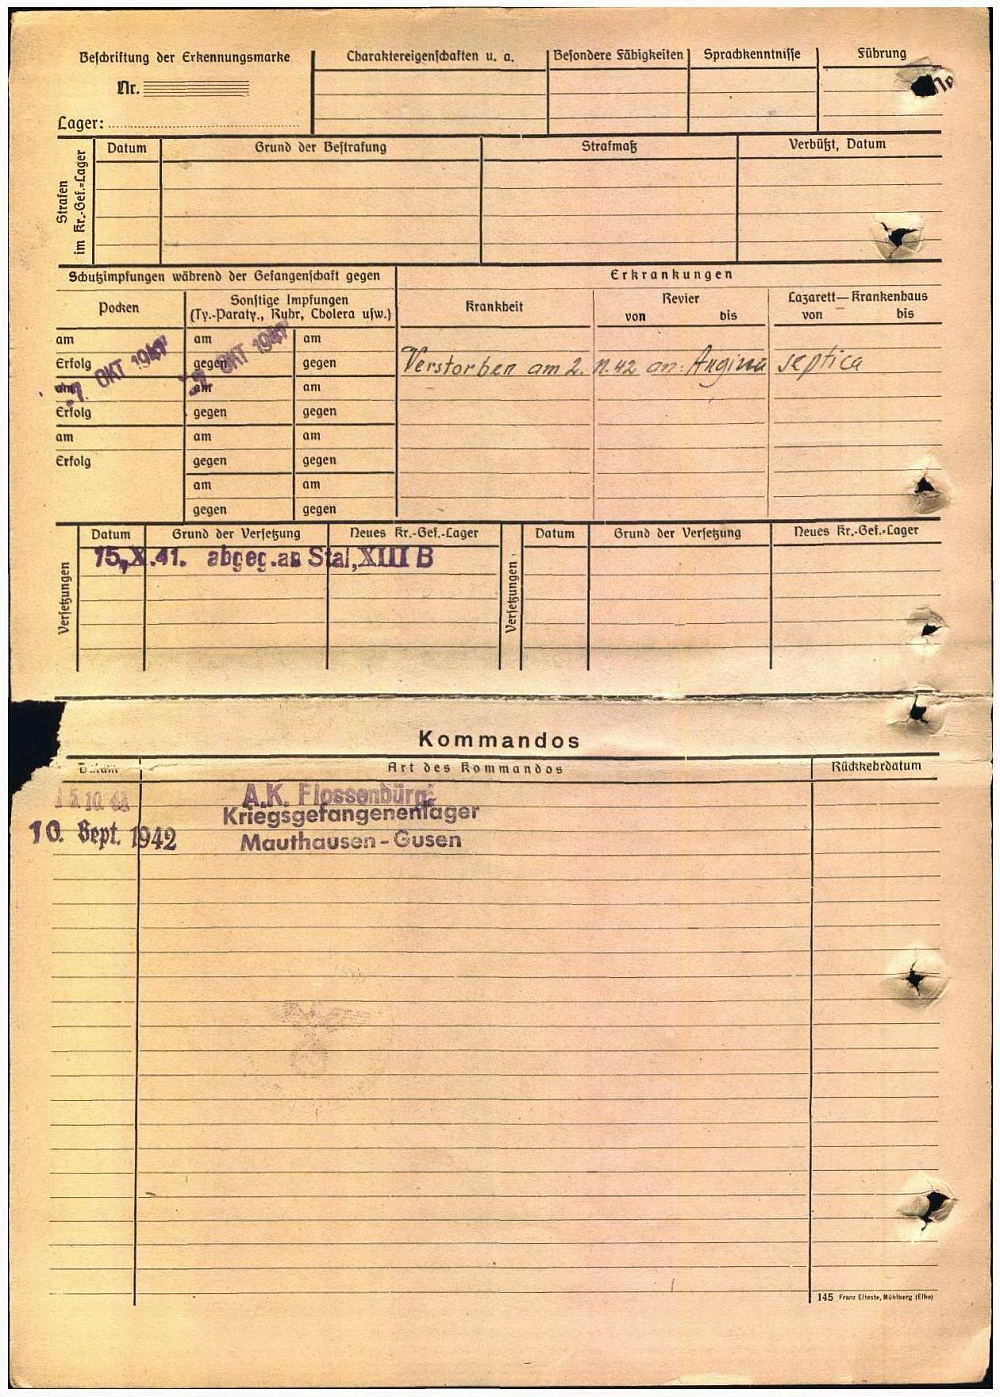 Beschriftung der Erkennungsmarke
Nr.
Lager:
Charaktereigenschaften u. a.
Besondere Fähigkeiten
Sprachkenntnisse
Führung
Strafen im Kr.-Gef.=Lager
Datum
Grund der Bestrafung
Strafmaß
Verbüßt, Datum
Schutzimpfungen während der Gefangenschaft gegen
Erkrankungen
Pocken
Sonstige Impfungen
(Ty.-Paraty., Ruhr, Cholera usw.)
Krankheit
Revier
von bis
Lazarett—Krankenhaus
von bis
am am am
Erfolg gegen gegen
OKT 1941 OKT 1941
Verstorben am 2. 11.42 an: Angina septica
am am am
Erfolg gegen gegen
am am am
Erfolg gegen gegen
am am
gegen gegen
Versetzungen
Datum Grund der Versetzung Neues Kr.-Gef.-Lager
Versetzungen
Datum Grund der Versetzung Neues Kr.-Gef.-Lager
15.X.41. abgeg.an Stal,XIII B
Kommandos
Datum Art des Kommandos Rückkehrdatum
15.10.41 A.K. Flossenbürg
Kriegsgefangenenlager
10. Sept. 1942 Mauthausen-Gusen
145 Franz Elteste, Mühlberg (Elbe)